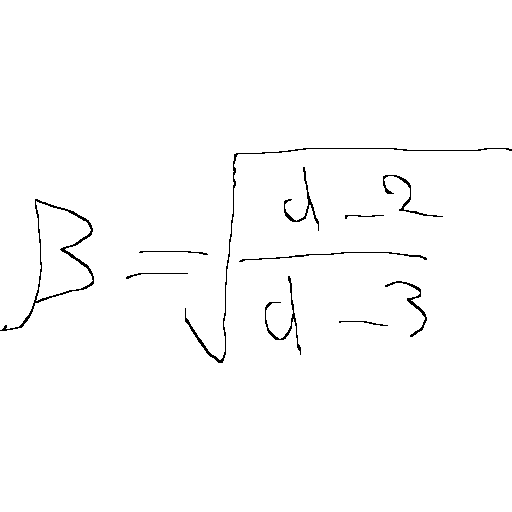 β = √((d - 2)/(d - 3))